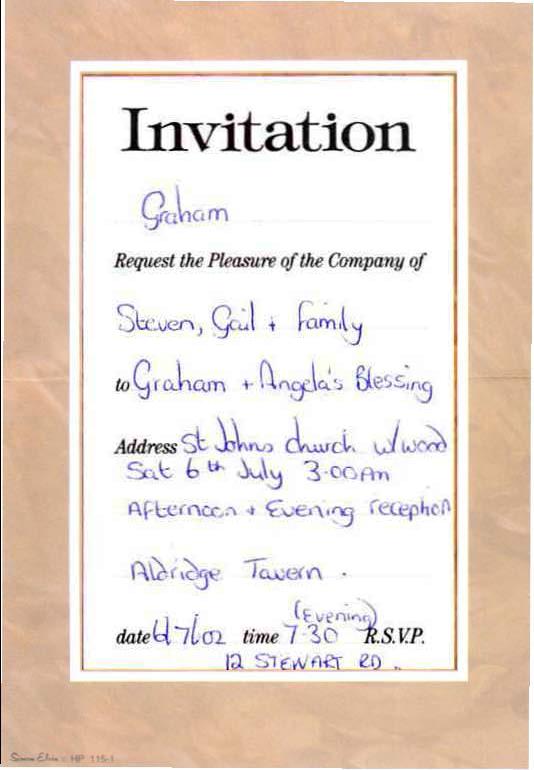 Invitation
Graham
Request the Pleasure of the Company of
Steven, Gail + Family
to Graham + Angela's Blessing
Address St Johns church w/wood
Sat 6th July 3.00Am
Afternoon + Evening reception
Aldridge Tavern .
(Evening)
date 6/7/02 time 7.30 R.S.V.P.
12 STEWART RD .
Simon Elvin HP 115-1